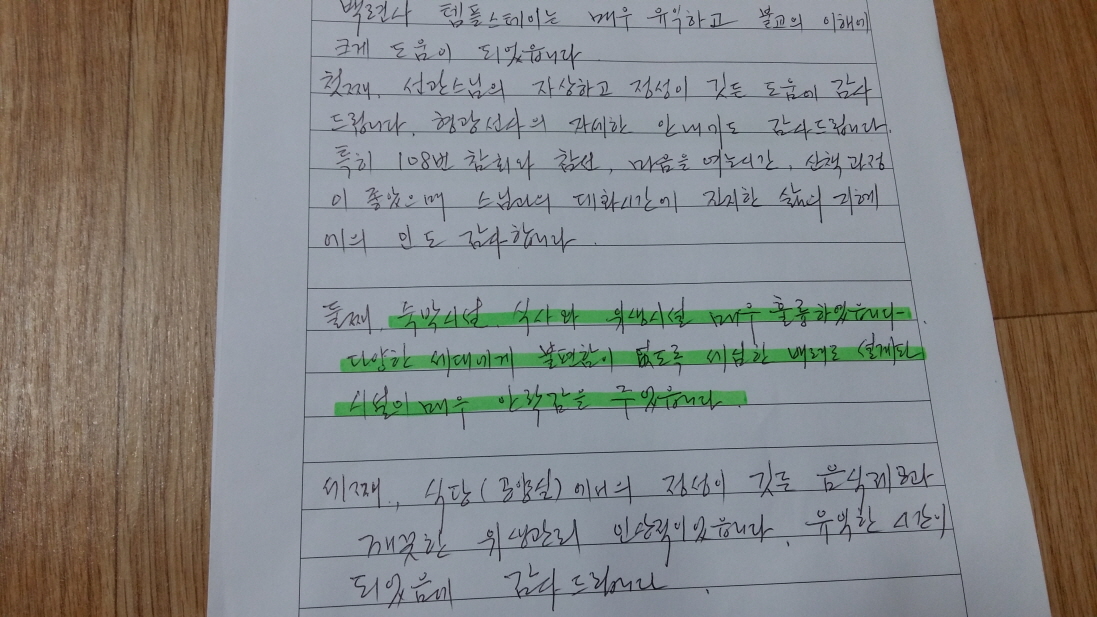 백련사 템플스테이는 매우 유익하고 불교의 이해에
크게 도움이 되었습니다
첫째, 선관스님의 자상하고 정성이 깃든 도움에 감사
드립니다. 형광선사의 자세한 안내기도 감사드립니다.
특히 108번 참회와 참선, 마음을 여는시간, 산책과정
이 좋았으며 스님과의 대화시간에 진지한 삶의 지혜
에의 인도 감사합니다.
둘째, 숙박시설, 식사와 위생시설 매우 훌륭하였습니다.
다양한 세대에게 불편함이 없도록 세심한 배려로 설계된
시설이 매우 안락감을 주었습니다.
세째, 식당(공양실)에서의 정성이 깃든 음식제공과
깨끗한 위생관리 인상적이었습니다. 유익한 시간이
되었음에 감사드립니다.